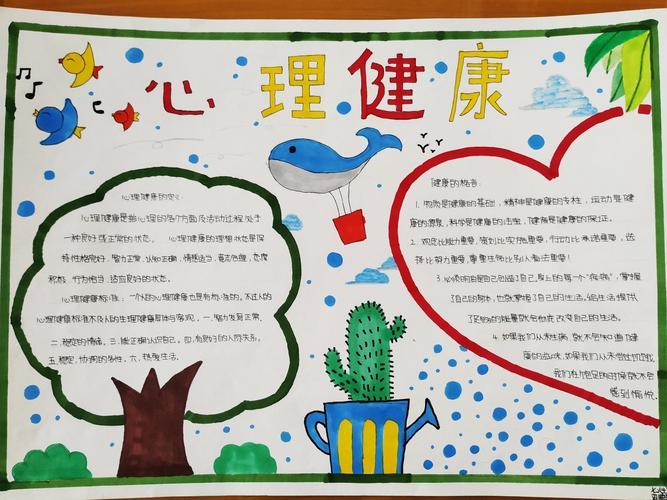 心理健康
心理健康的定义:
心理健康是指心理的各个方面及活动过程处于
一种良好或正常的状态。心理健康的理想状态是保
持性格完好、智力正常、认知正确、情感适当、意志合理、态度
积极、行为恰当、适应良好的状态。
心理健康标准,一个人的心理健康也是有标准的。不过人的
心理健康标准不及人的生理健康具体与客观。一.智力发展正常.
二.稳定的情绪。三.能正确认识自己。四.有良好的人际关系。
五.稳定、协调的个性。六.热爱生活。
健康的格言:
1.物质是健康的基础,精神是健康的支柱,运动是健
康的源泉,科学是健康的法宝,健商是健康的保证。
2.观念比能力重要,策划比实施重要,行动比承诺重要,选
择比努力重要,尊重生命比别人看法重要。
3.必须明白是自己创造了自己身上的每一个"疾病",掌握
了自己的身体,也就掌握了自己的生活。给生活提供
了足够的能量就会他在改变自己的生活。
4.如果我们从未生病,就不会知道健
康的滋味,如果我们从未尝过饥饿,
我们在饱足的时候就不会
感到愉悦。